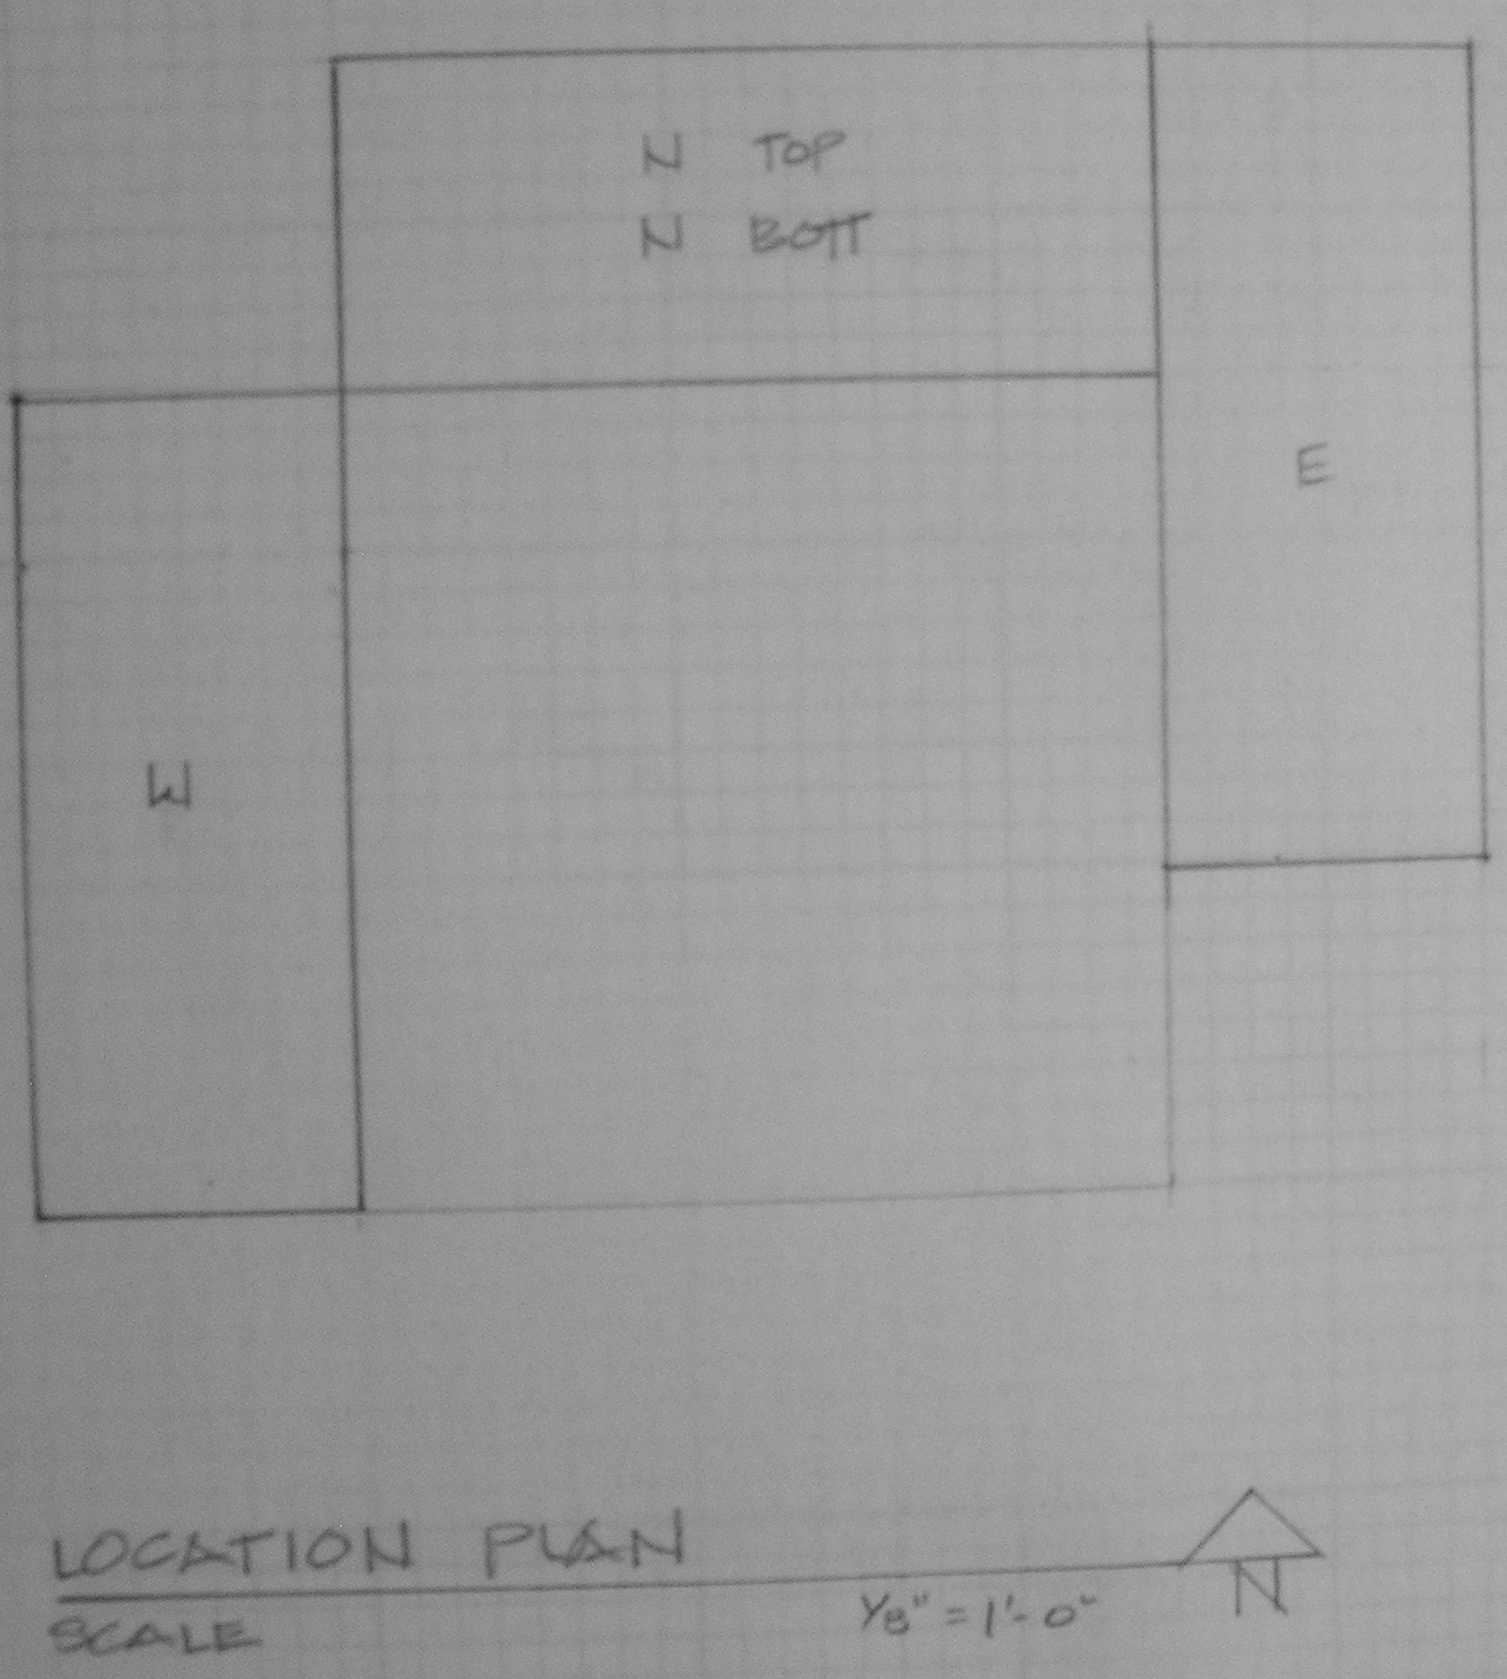 N TOP
N BOTT
E
W
LOCATION PLAN
SCALE 1/8" = 1'-0"
N